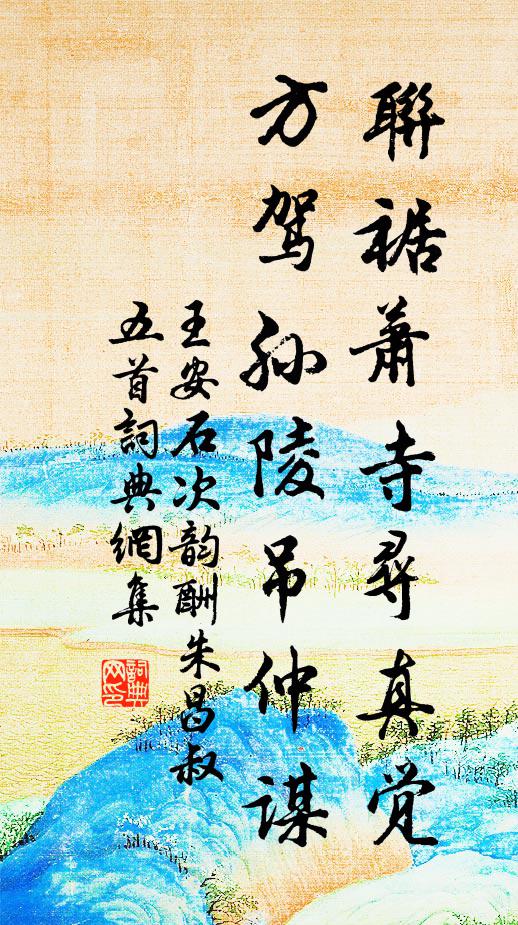 聯裾蕭寺尋真觉
方驾孙陵吊仲谋
王安石次韵酬朱昌叔
五首詞典網集
詞典
网印